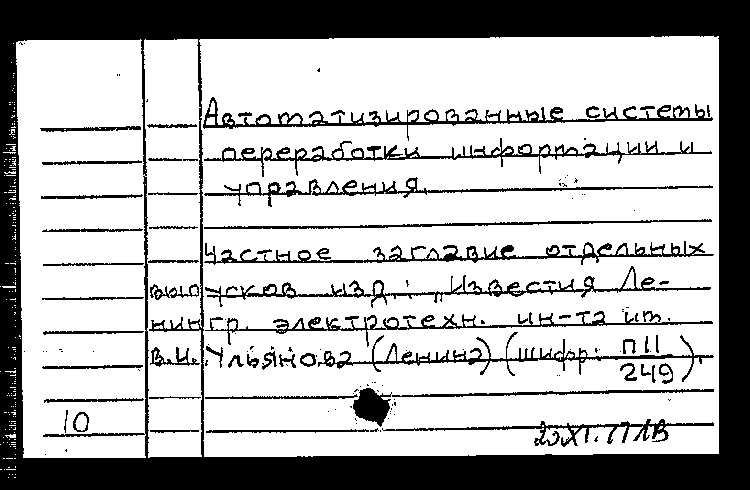 Автоматизированные системы
переработки информации и
управления.
Частное заглавие отдельных
выпусков изд.: „Известия Ле-
нингр. электротехн. ин-та им.
В.И. Ульянова (Ленина) (шифр: П11/249).
10
XI.77